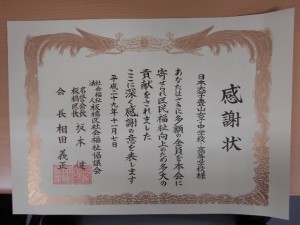 感謝状
日本大学豊山女子中学校・高等学校様
あなたはさきに多額の金員を本会に
寄せられ区民福祉向上のため多大の
貢献をされました
ここに深く感謝の意を表します
平成二十九年十一月七日
社会福祉法人 板橋区社会福祉協議会
名誉会長
板橋区長 坂本 健
会長 相田義正